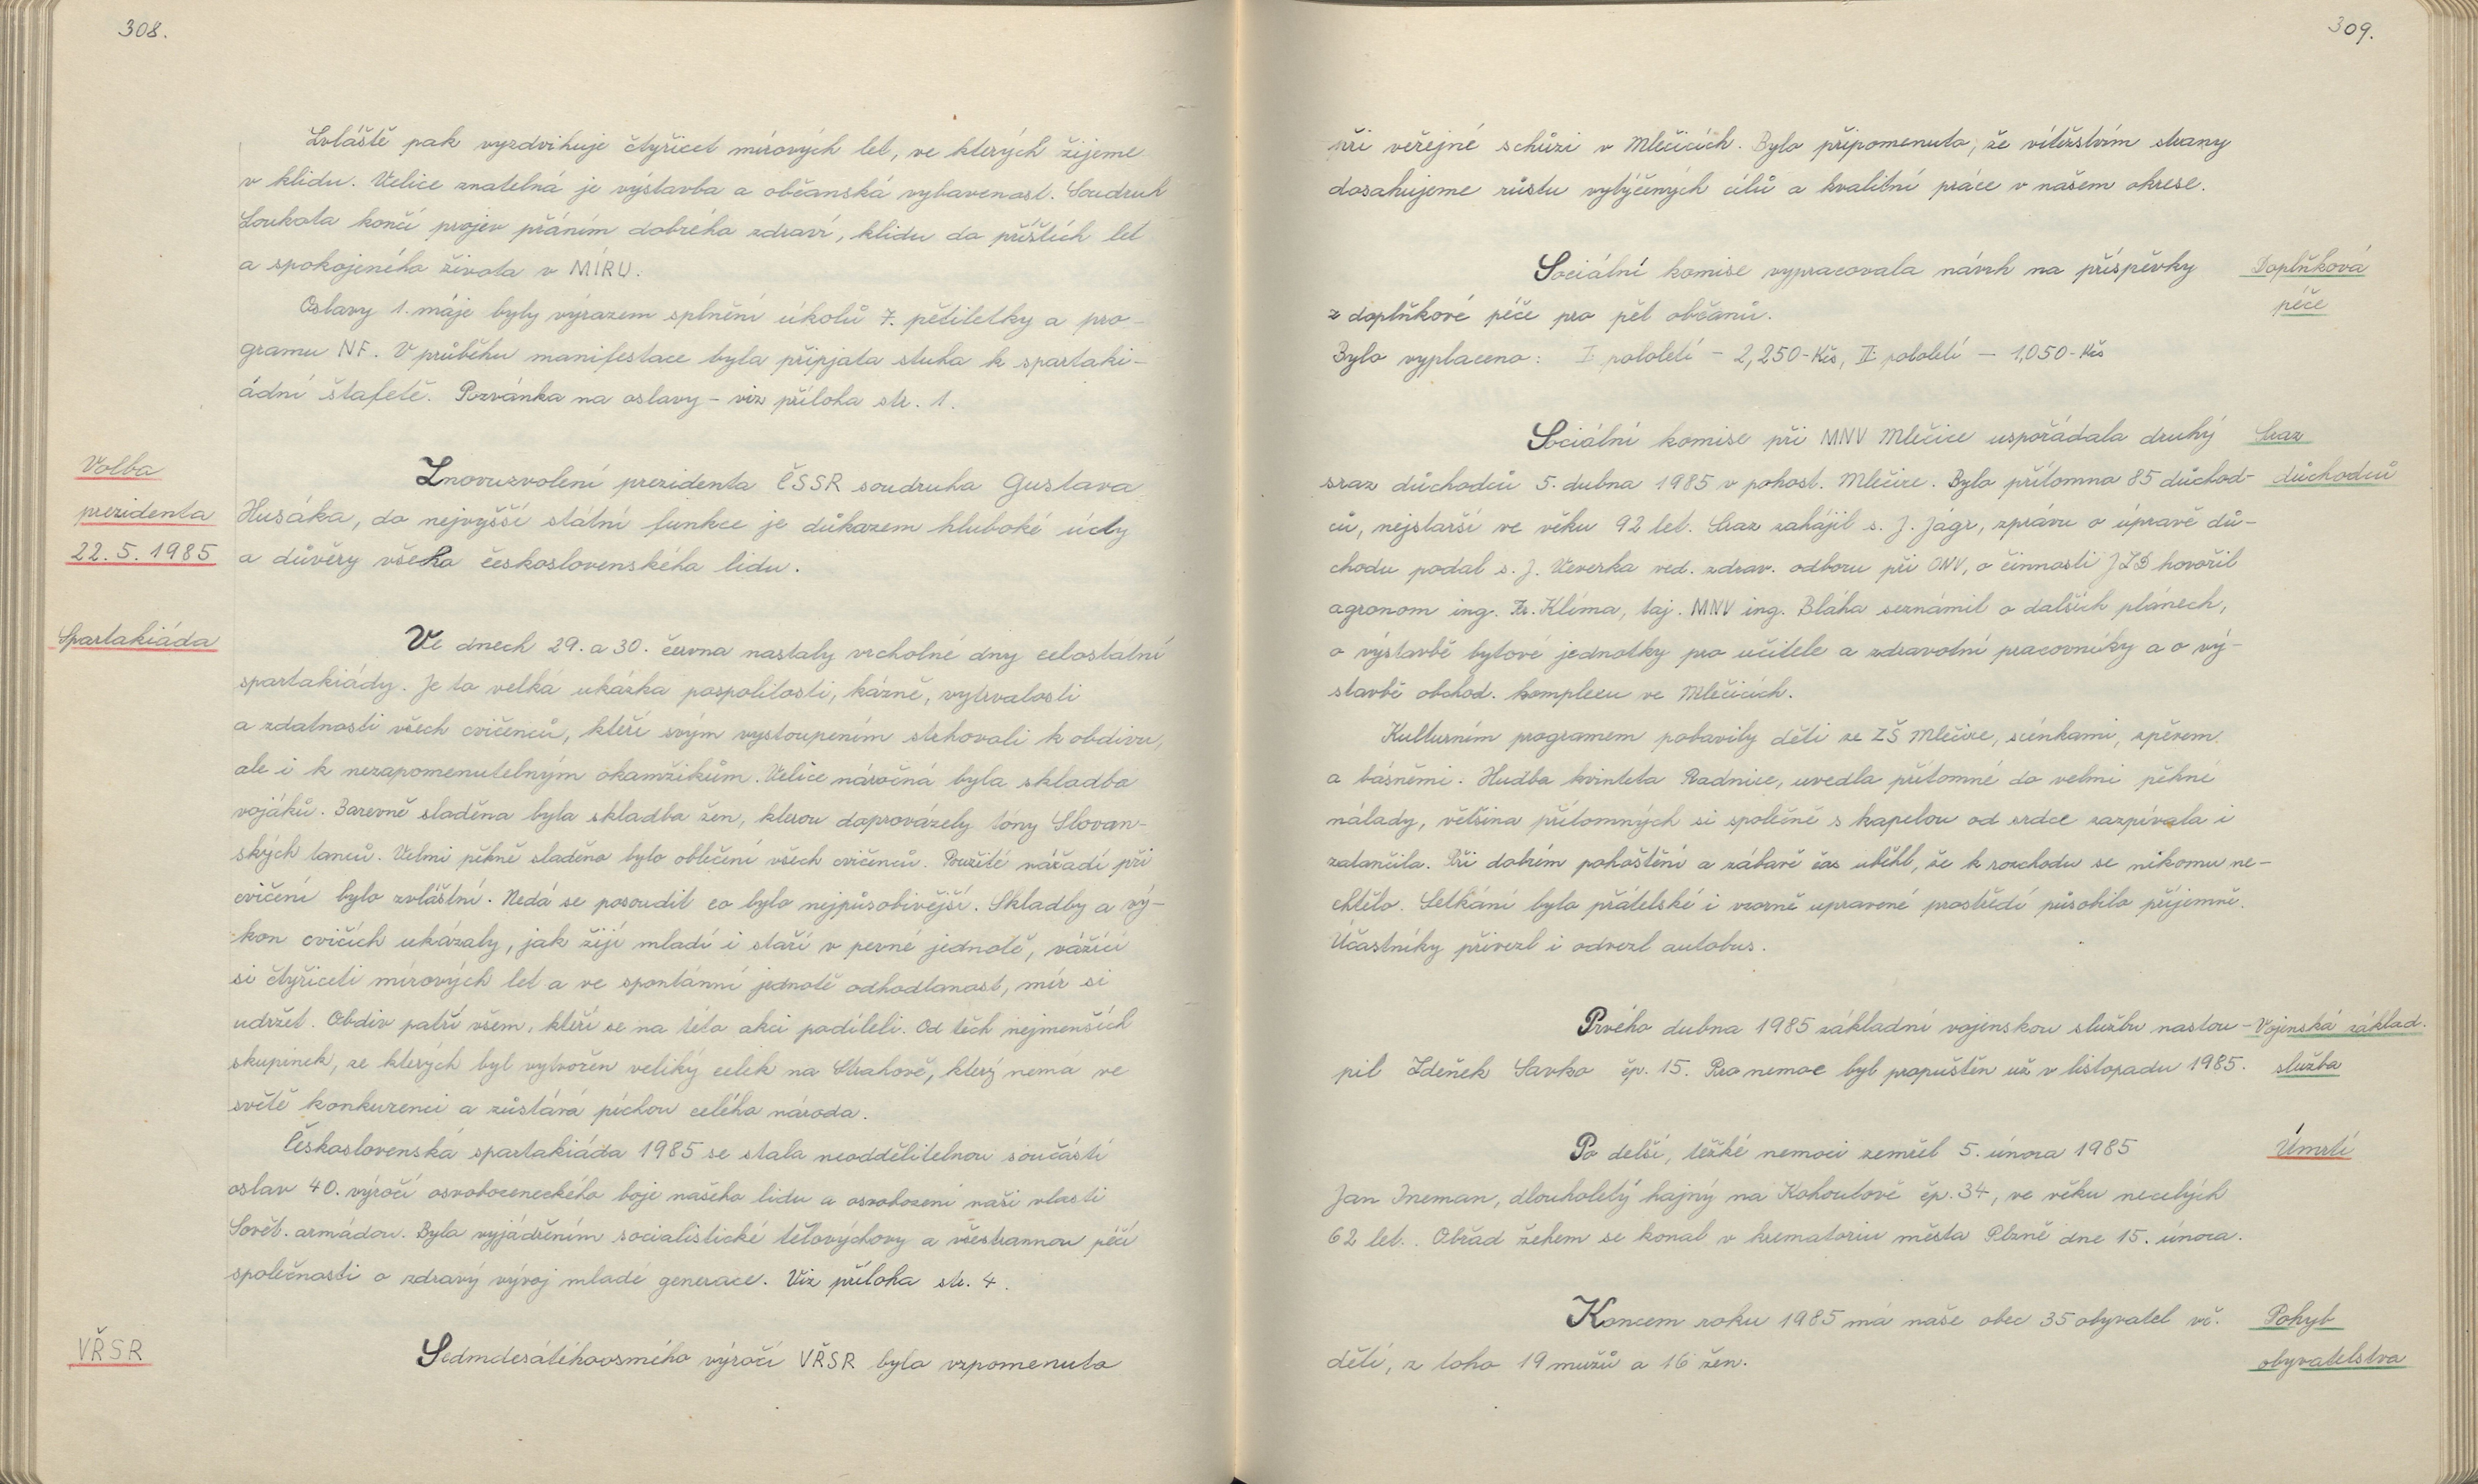 308.
Zvláště pak vyzdvihuje čtyřicet mírových let, ve kterých žijeme
v klidu. Velice znatelná je výstavba a občanská vybavenost. Soudruh
Loukota končí projev přáním dobrého zdraví, klidu do příštích let
a spokojeného života v MÍRU.
Oslavy 1. máje byly výrazem splnění úkolů 7. pětiletky a pro-
gramu NF. V průběhu manifestace byla připjata stuha k spartaki-
ádní štafetě. Pozvánka na oslavy - viz příloha str. 1.
Volba
prezidenta
22. 5. 1985
Znovuzvolení prezidenta ČSSR soudruha Gustava
Husáka, do nejvyšší státní funkce je důkazem hluboké úcty
a důvěry všeho československého lidu.
Spartakiáda
Ve dnech 29. a 30. června nastaly vrcholné dny celostatní
spartakiády. Je to velká ukázka pospolitosti, kázně, vytrvalosti
a zdatnosti všech cvičenců, kteří svým vystoupením strhovali k obdivu,
ale i k nezapomenutelným okamžikům. Velice náročná byla skladba
vojáků. Barevně sladěna byla skladba žen, kterou doprovázely tóny Slovan-
ských tanců. Velmi pěkně sladěno bylo oblečení všech cvičenců. Použité nářadí při
cvičení bylo zvláštní. Nedá se posoudit co bylo nejpůsobivější. Skladby a vý-
kon cvičích ukázaly, jak žijí mladí i staří v pevné jednotě, vážící
si čtyřiceti mírových let a ve spontánní jednotě odhodlanost, mír si
udržet. Obdiv patří všem, kteří se na této akci podíleli. Od těch nejmenších
skupinek, ze kterých byl vytvořen veliký celek na Strahově, který nemá ve
světě konkurenci a zůstává pýchou celého národa.
Československá spartakiáda 1985 se stala neoddělitelnou součástí
oslav 40. výročí osvobozeneckého boje našeho lidu a osvobození naší vlasti
Sovět. armádou. Byla vyjádřením socialistické tělovýchovy a všestrannou péčí
společnosti o zdravý vývoj mladé generace. Viz příloha str. 4.
VŘSR
Sedmdesátéhoosmého výročí VŘSR bylo vzpomenuto
309.
při veřejné schůzi v Mlečicích. Bylo připomenuto, že vítězstvím strany
dosahujeme růstu vytýčených cílů a kvalitní práce v našem okrese.
Doplňková
péče
Sociální komise vypracovala návrh na příspěvky
z doplňkové péče pro pět občanů.
Bylo vyplaceno: I. pololetí - 2,250-Kčs, II. pololetí - 1,050-Kčs
Sraz
důchodců
Sociální komise při MNV Mlečice uspořádala druhý
sraz důchodců 5. dubna 1985 v pohost. Mlečice. Bylo přítomno 85 důchod-
ců, nejstarší ve věku 92 let. Sraz zahájil s. J. Jágr, zprávu o úpravě dů-
chodu podal s. J. Veverka ved. zdrav. odboru při ONV, o činnosti JZD hovořil
agronom ing. Fr. Klíma, taj. MNV ing. Bláha seznámil o dalších plánech,
o výstavbě bytové jednotky pro učitele a zdravotní pracovníky a o vý-
stavbě obchod. komplexu ve Mlečicích.
Kulturním programem pobavily děti ze ZŠ Mlečice, scénkami, zpěvem
a básněmi. Hudba kvinteta Radnice, uvedla přítomné do velmi pěkné
nálady, většina přítomných si společně s kapelou od srdce zazpívala i
zatančila. Při dobrém pohoštění a zábavě čas uběhl, že k rozchodu se nikomu ne-
chtělo. Setkání bylo přátelské i vzorně upravené prostředí působilo příjemně.
Účastníky přivezl i odvezl autobus.
Vojenská základ.
služba
Prvého dubna 1985 základní vojenskou službu nastou-
pil Zdeněk Savko čp. 15. Pro nemoc byl propuštěn už v listopadu 1985.
Úmrtí
Po delší, těžké nemoci zemřel 5. února 1985
Jan Ineman, dlouholetý hajný na Kohoutově čp. 34, ve věku necelých
62 let. Obřad žehem se konal v krematoriu města Plzně dne 15. února.
Pohyb
obyvatelstva
Koncem roku 1985 má naše obec 35 obyvatel vč.
dětí, z toho 19 mužů a 16 žen.